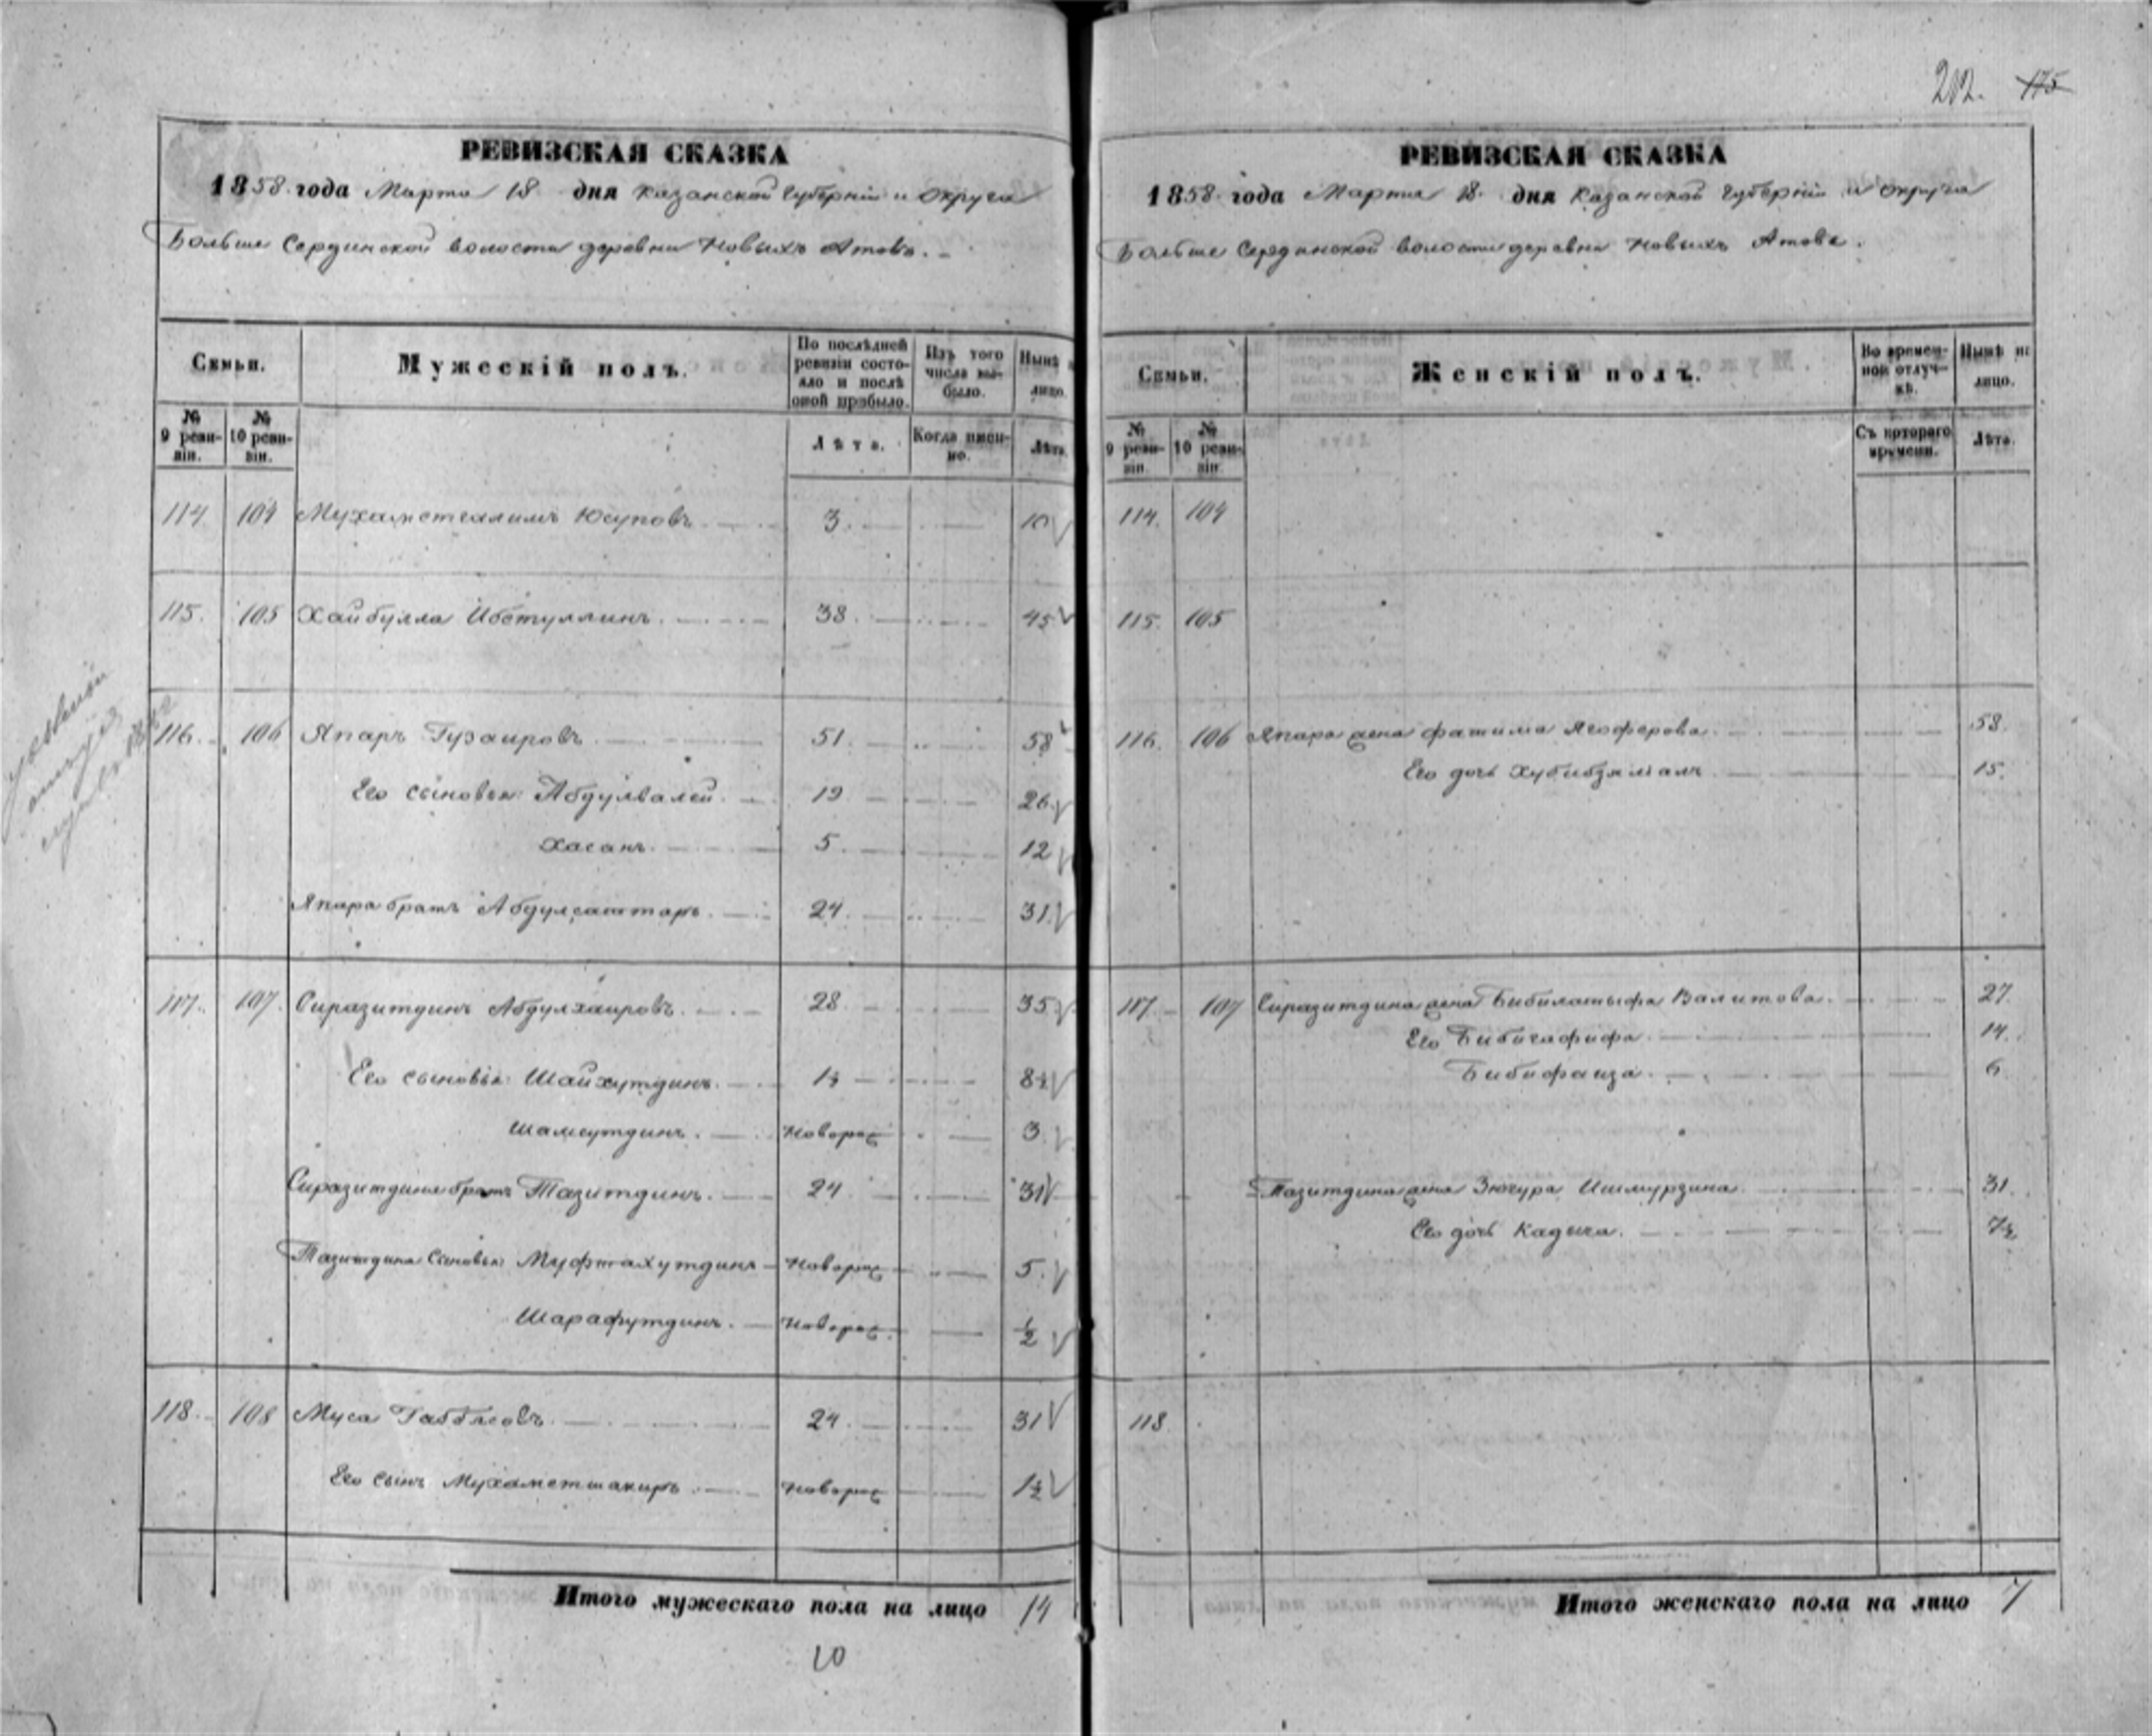 РЕВИЗСКАЯ СКАЗКА
1858 года Марта 18 дня Казанской Губерніи и округа
Больше Сердинской волости деревни Новыхъ Атовъ.
Семьи. Мужескій полъ. По послѣдней ревизіи состояло и послѣ оной прибыло. Изъ того числа выбыло. Нынѣ на лицо.
№ 9 ревизіи. № 10 ревизіи. Лѣта. Когда именно. Лѣта.
114 104 Мухаметгалимъ Юсуповъ 3. 10
115. 105 Хайбулла Ибетуллинъ. 38. 45
116. 106 Япаръ Гузаировъ 51. 58
Его сыновья: Абдулвалей. 19 26.
Хасанъ. 5. 12
Япара братъ Абдулсаттаръ. 24. 31.
117. 107. Сиразитдинъ Абдулхаировъ. 28 35
Его сыновья: Шайхутдинъ. 1½ 8½
Шамсутдинъ. Новорож 3.
Сиразитдина братъ Тазитдинъ. 24. 31
Тазитдина сыновья: Муфтахутдинъ Новорож 5.
Шарафутдинъ. Новорож. ½
118. 108 Муса Габбясовъ. 24. 31
Его сынъ Мухаметшакиръ. Новорож 1½
Итого мужескаго пола на лицо 14
10
202. 175
РЕВИЗСКАЯ СКАЗКА
1858 года Марта 18. дня Казанской Губерніи и округа
Больше Сердинской волости деревни Новыхъ Атовъ.
Семьи. Женскій полъ. Во временной отлучкѣ. Нынѣ на лицо.
№ 9 ревизіи. № 10 ревизіи. Съ котораго времени. Лѣта.
114. 104
115. 105
116. 106 Япара жена Фатима Ягоферова. 58.
Его дочь Хубибзямалъ. 15.
117. 107 Сиразитдина жена Бибилатыфа Валитова. 27.
Его Бибигафифа. 14.
Бибифаиза. 6
Тазитдина жена Зюгура Ишмурзина. 31.
Его дочь Кадыча. 7½
118
Итого женскаго пола на лицо 7